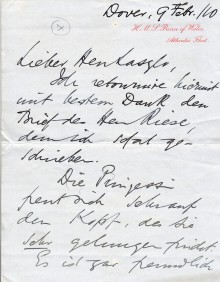 Dover, 9 Febr./10
H.M.S. Prince of Wales,
Atlantic Fleet.
Lieber Herr Laszlo,
Ich retourniere hiermit
mit bestem Dank den
Brief des Herrn Riese,
dem ich sofort ge-
schrieben.
Die Prinzess
freut sich sehr auf
den Kopf, den sie
sehr gelungen findet.
Es ist gar freundlich